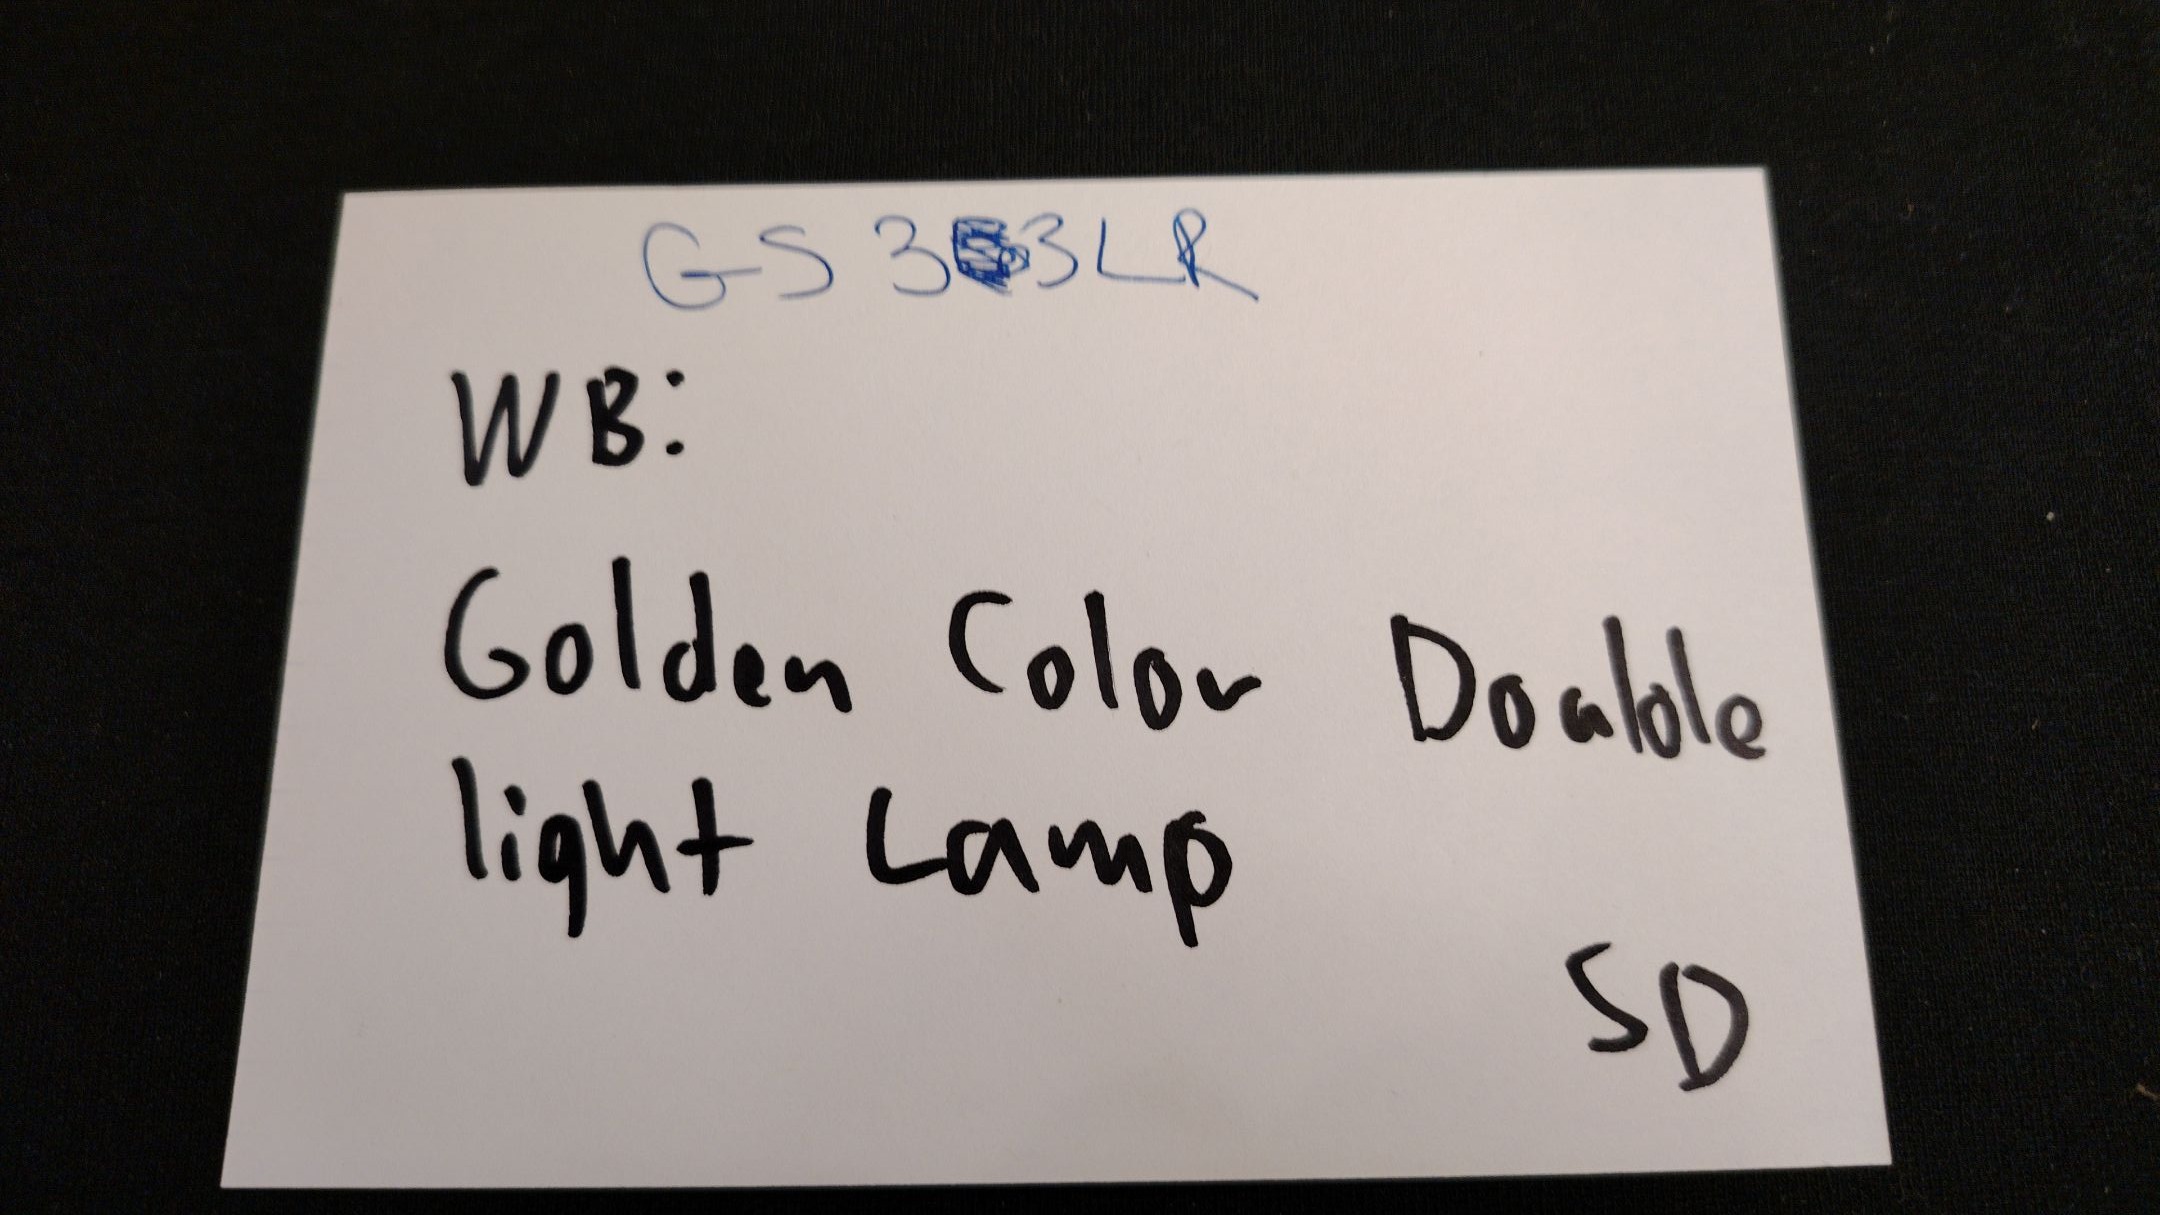 GS 3 3LR
WB:
Golden Color Double
light Lamp
SD